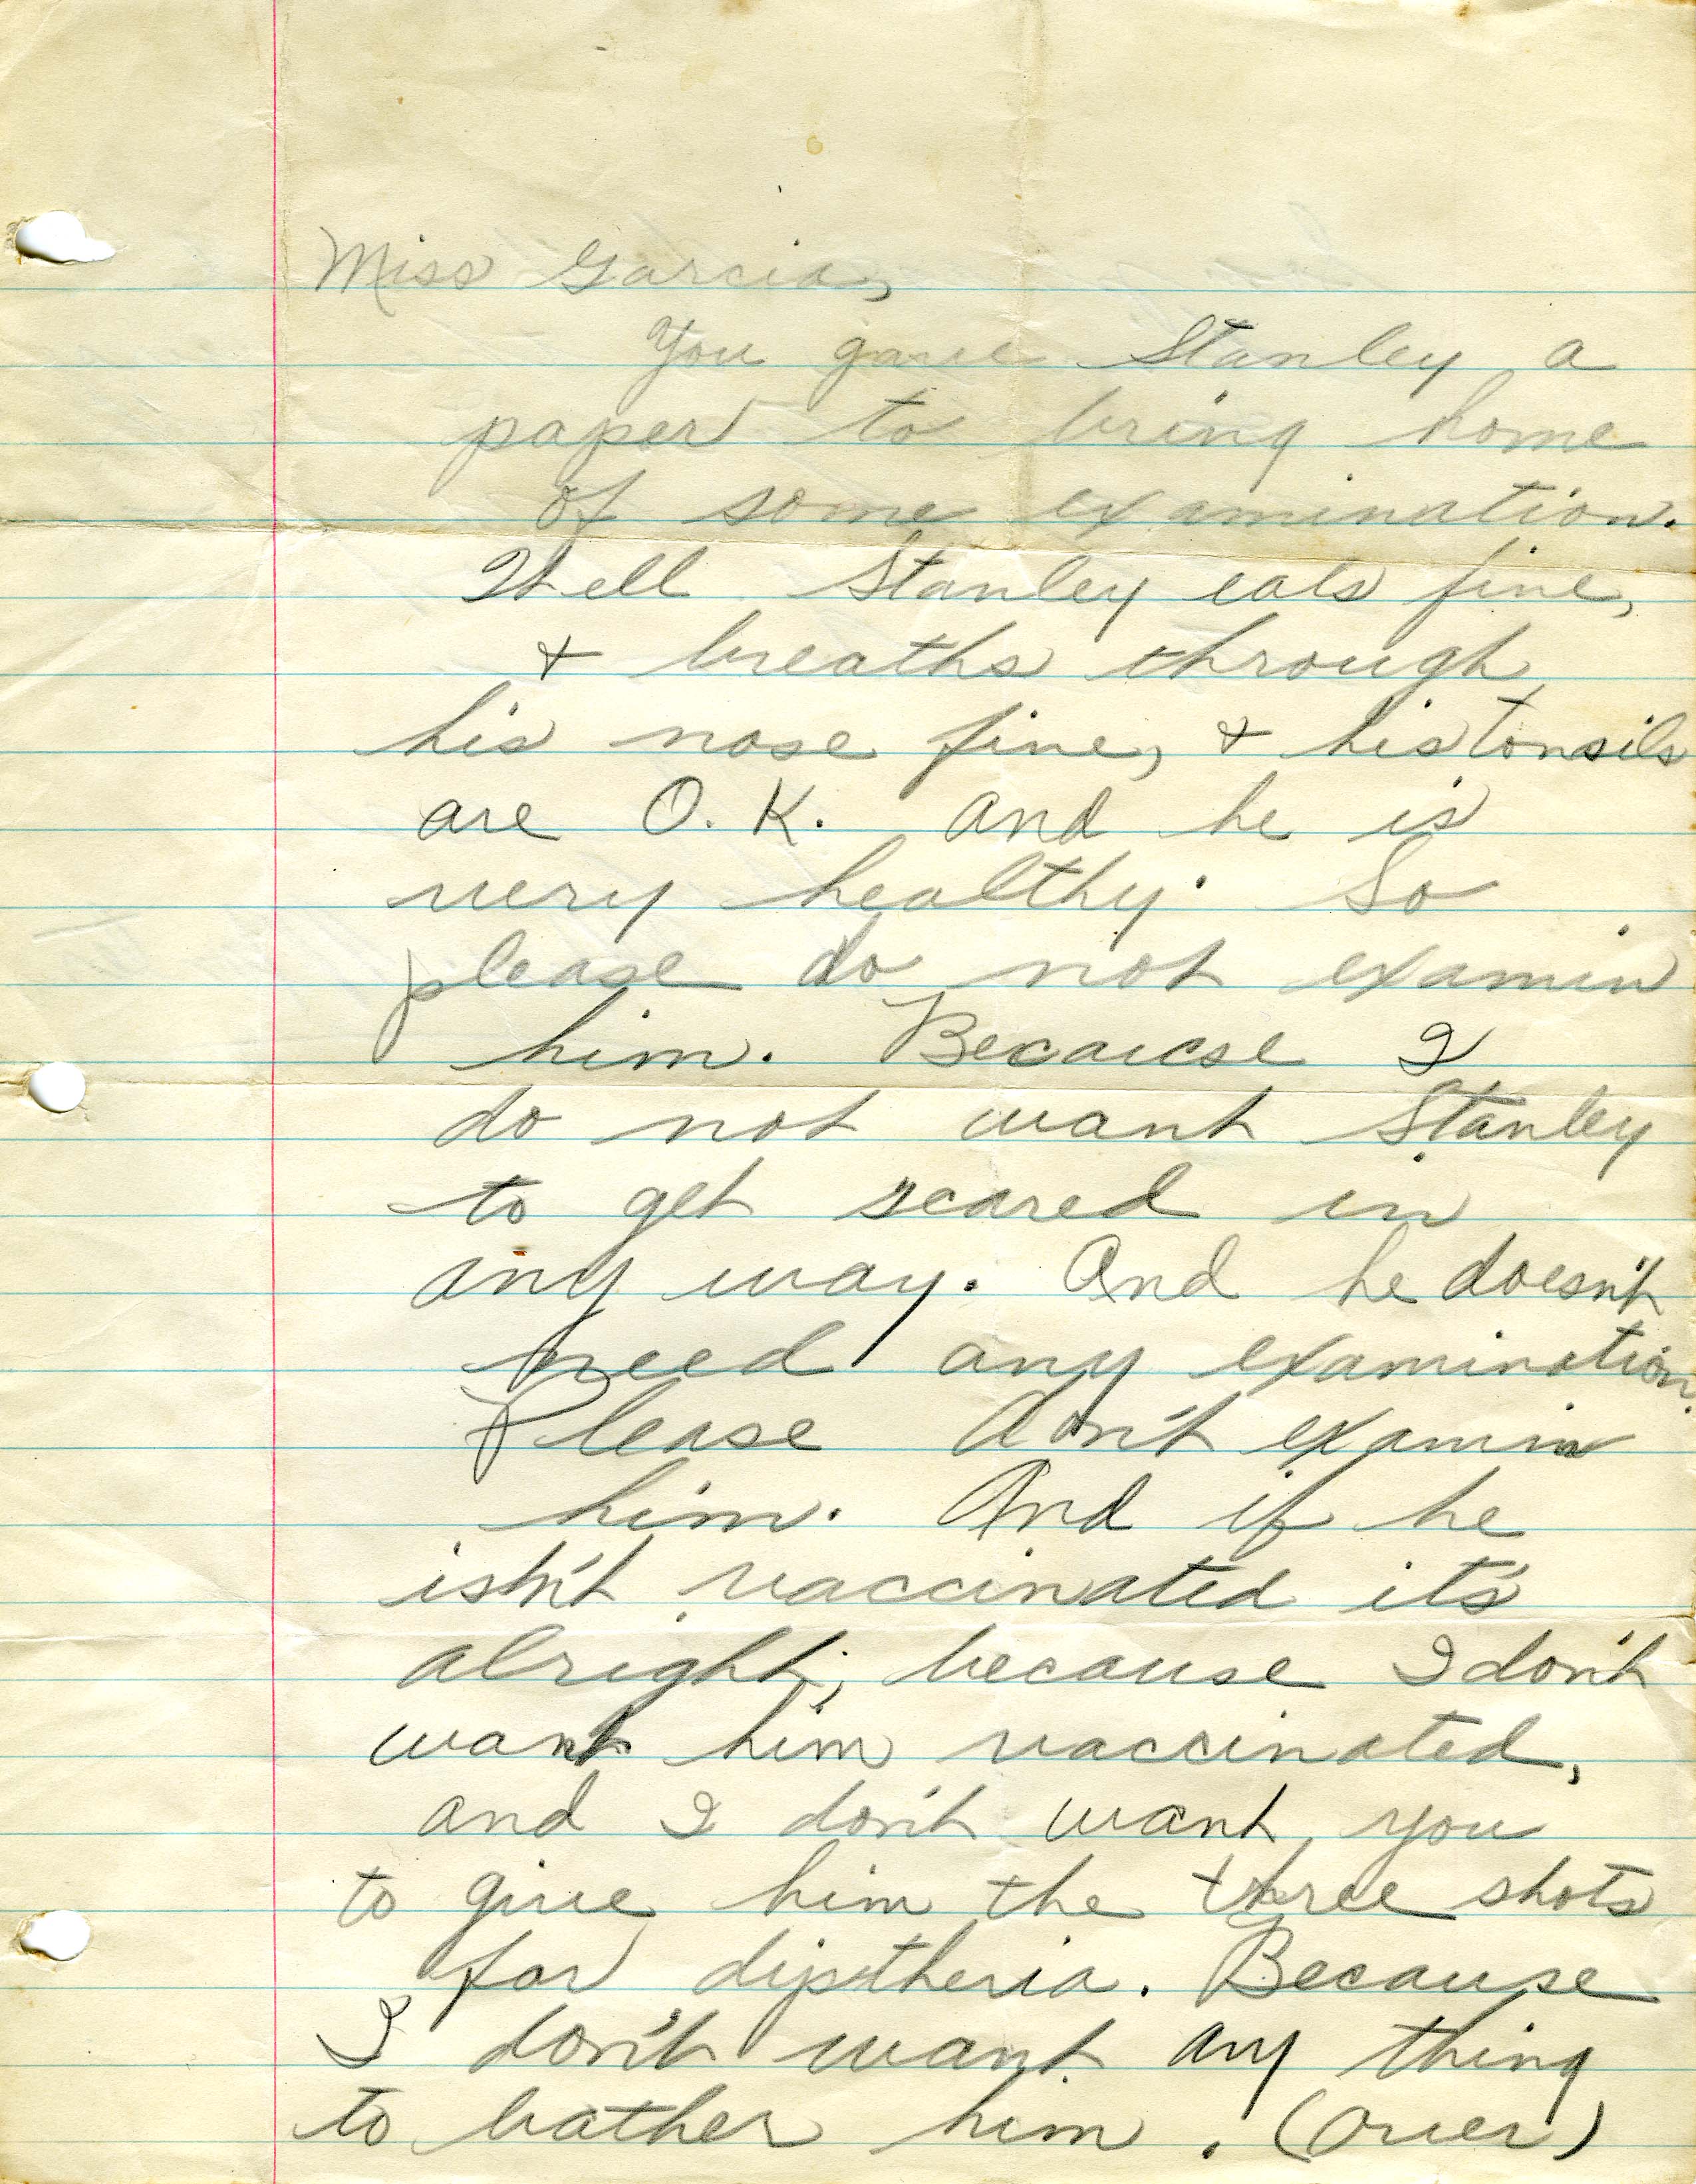 Miss Garcia,
You gave Stanley a
paper to bring home
of some examination.
Well Stanley eats fine,
& breaths through
his nose fine, & his tonsils
are O.K. and he is
very healthy. So
please do not examin
him. Because I
do not want Stanley
to get scared in
any way. And he doesn't
need any examination.
Please don't examin
him. And if he
isn't vaccinated it's
alright; because I don't
want him vaccinated,
and I don't want you
to give him the three shots
for diptheria. Because
I don't want any thing
to bather him. (Over)